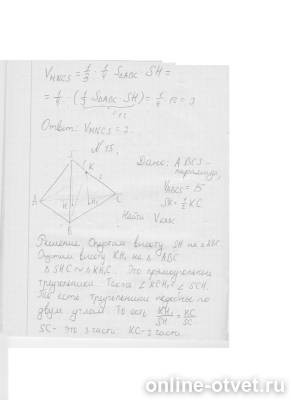 V_MNCS = 1/3 · 1/4 S_ΔABC · SH =
= 1/4 · (1/3 S_ΔABC · SH) = 1/4 · 12 = 3
12
Ответ: V_MNCS = 3.
N 15.
S
K
A
H
H₁
C
B
Дано: ABCS -
пирамида,
V_ABCS = 15
SK = 1/2 KC
Найти
Решение Опустим высоту SH на ΔABC.
Опустим высоту KH₁ на ΔABC
Δ SHC ~ Δ KH₁C. Это прямоугольные
треугольники. Также ∠KCH₁ = ∠SCH.
То есть треугольники подобны по
двум углам. То есть KH₁/SH = KC/SC
SC - это 3 части. KC - 2 части.
online-otvet.ru